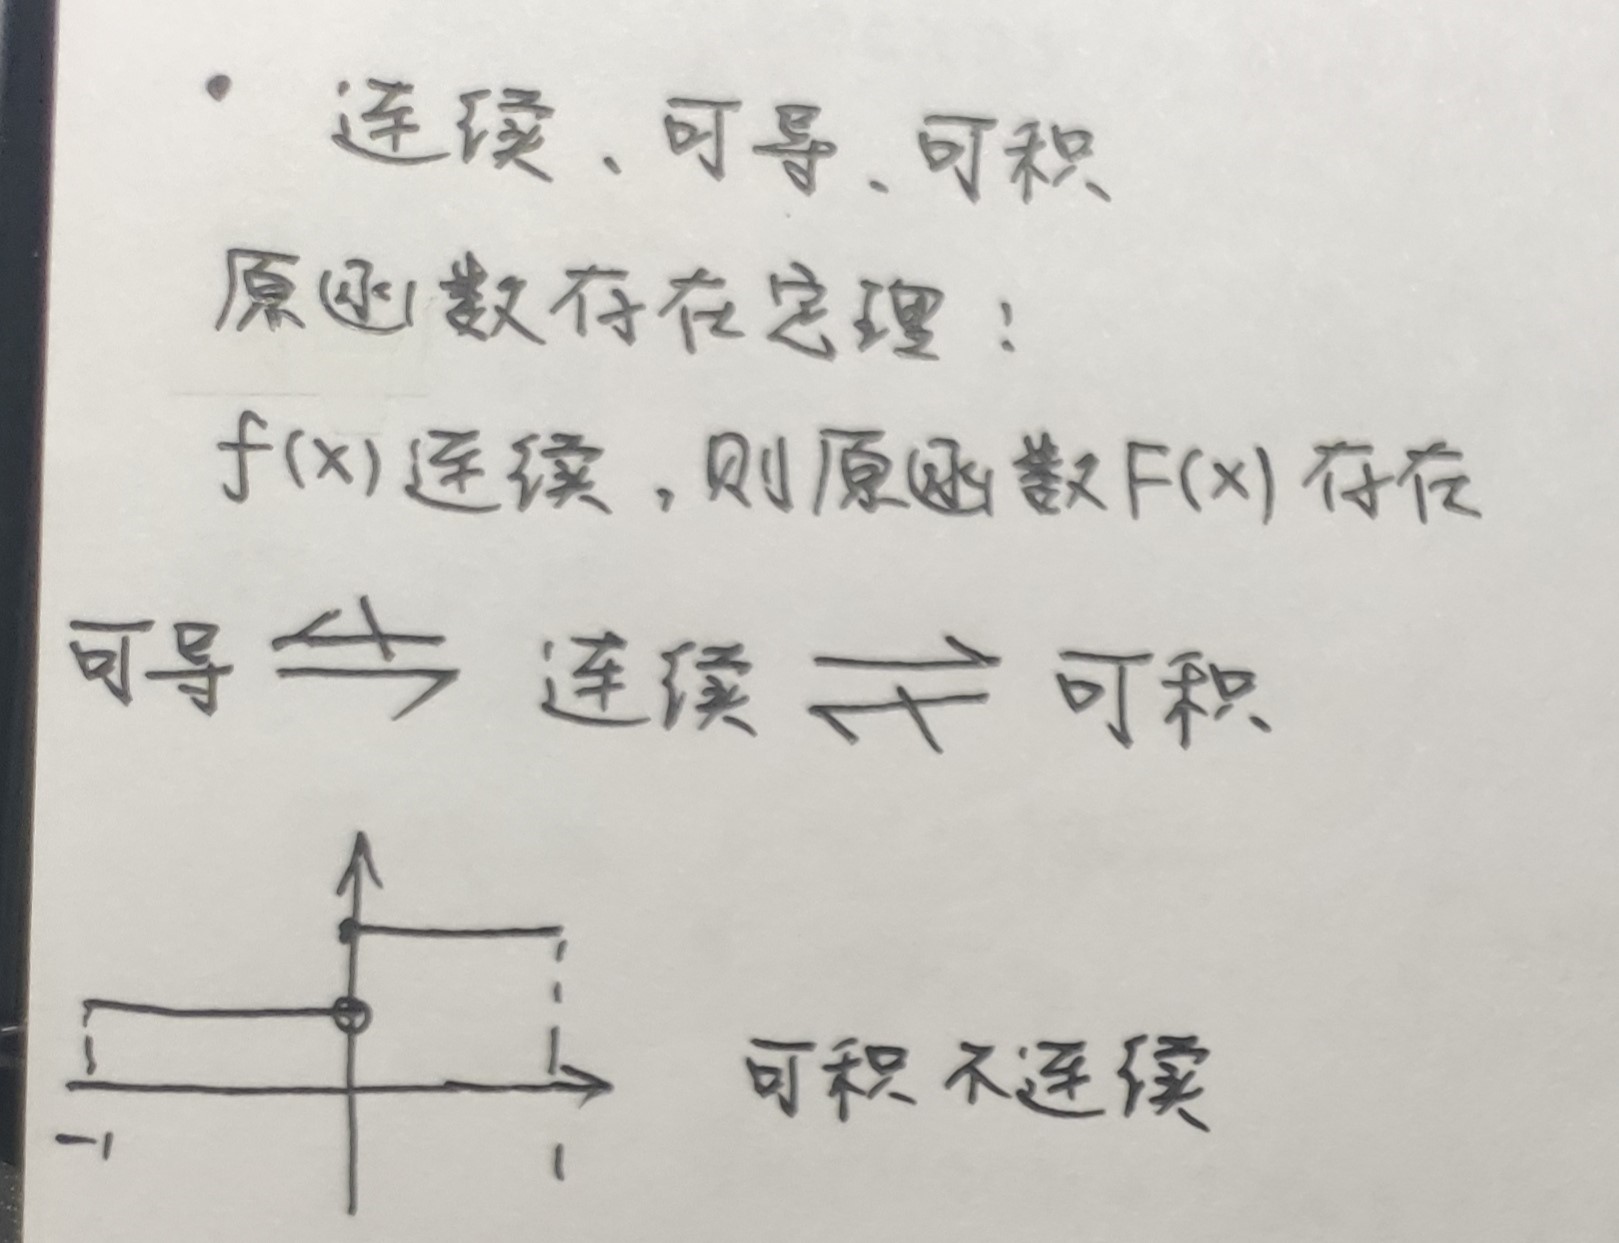 · 连续、可导、可积
原函数存在定理：
f(x)连续，则原函数F(x)存在
可导 ⇌ 连续 ⇌ 可积
可积不连续
-1 1